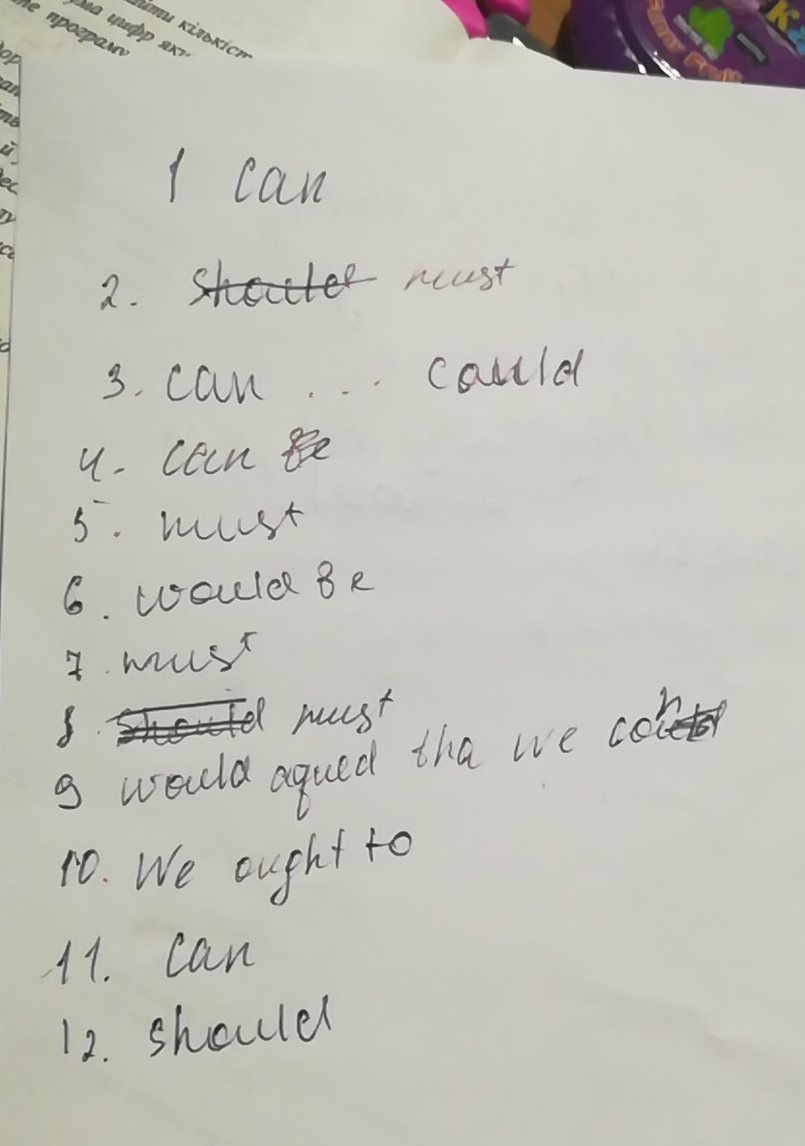 йти кількіст
ума цифр яку
те програму
1 can
2. should must
3. can ... could
4. can be
5. must
6. would be
7. must
8. should must
9 would aqued tha we can
10. We ought to
11. can
12. should